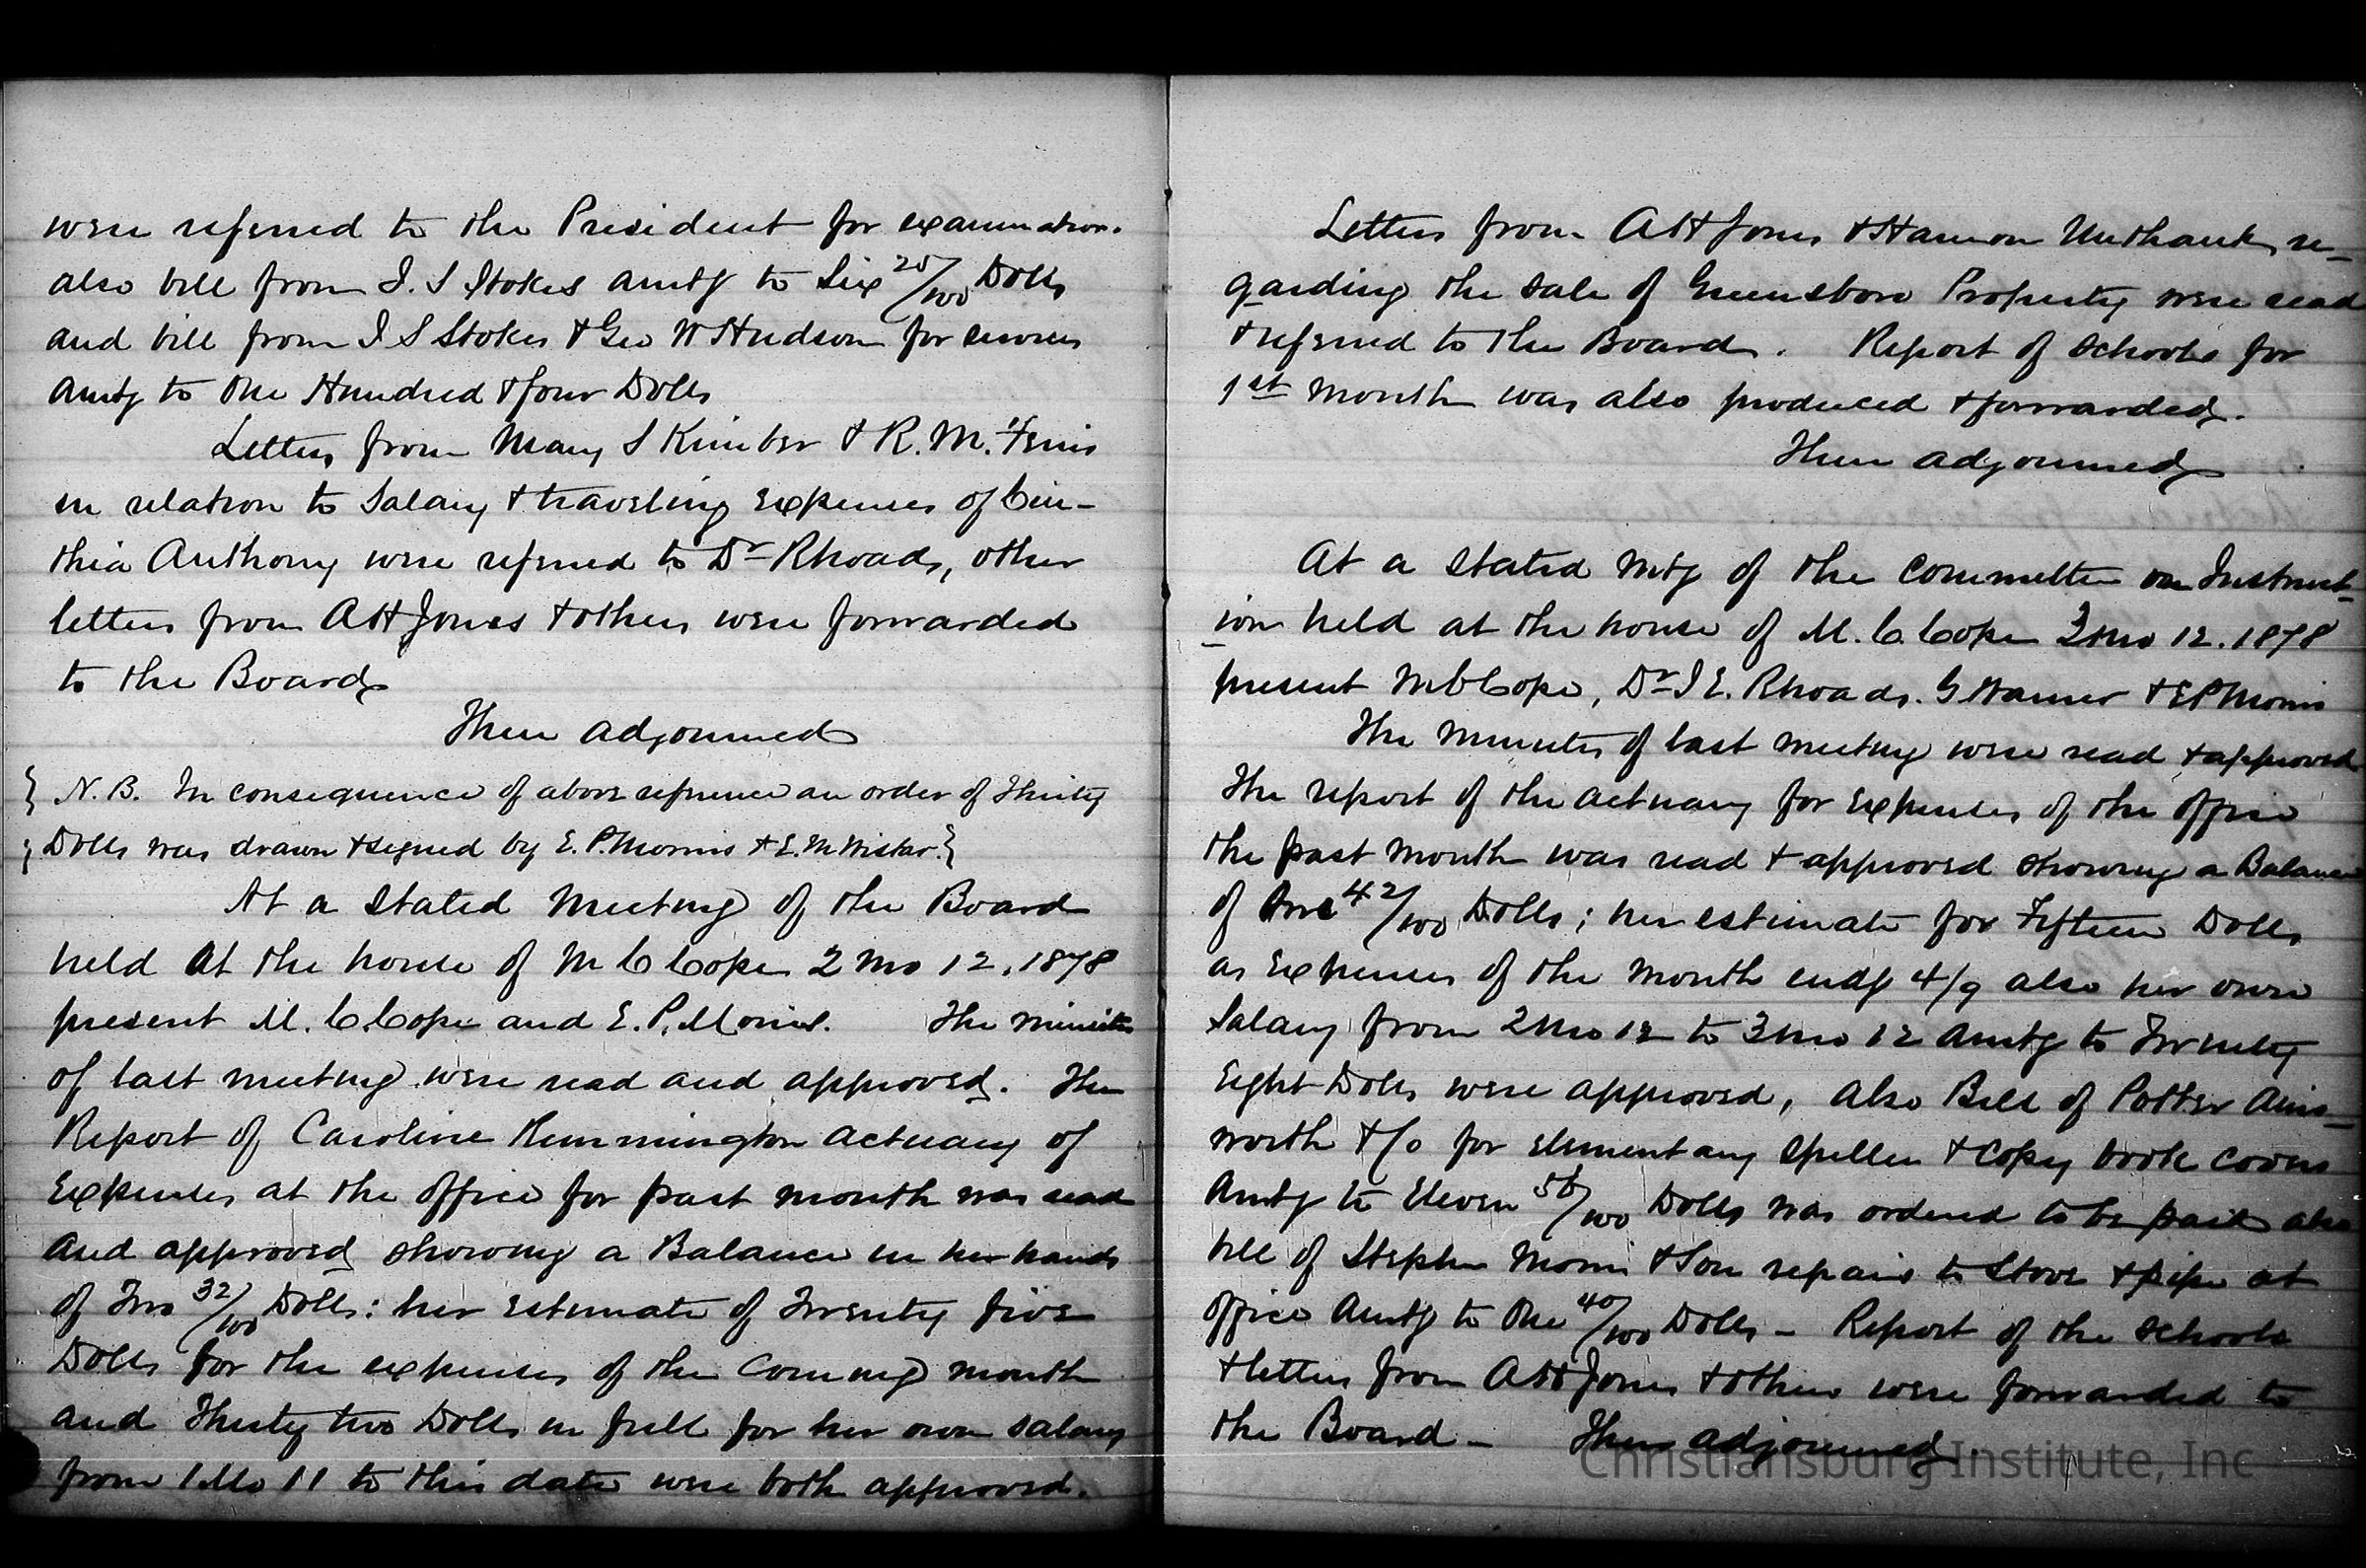 were referred to the President for examination.
also bill from I. S Stokes amtg to Six 25/100 Dolls
and bill from I S Stokes & Geo W Hudson for services
amtg to One Hundred & four Dolls
Letters from Mary S Kimber & R. M. Ferris
in relation to Salary & traveling Expenses of Cin-
thia Anthony were referred to Dr Rhoads, other
letters from A H Jones & others were forwarded
to the Board
Then adjourned
{ N. B. In consequence of above reference an order of Thirty
{ Dolls was drawn & signed by E. P. Morris & E. M Wistar. }
At a Stated Meeting of the Board
held at the house of M C Cope 2 mo 12. 1878
present M. C. Cope and E. P. Morris. The minutes
of last meeting were read and approved. The
Report of Caroline Remmington actuary of
Expenses at the office for past month was read
and approved showing a Balance in her hands
of Two 32/100 Dolls: her Estimate of Twenty five
Dolls for the expenses of the Coming month
and Thirty two Dolls in full for her own salary
from 1 Mo 11 to this date were both approved.
Letters from A H Jones & Harmon Unthank re-
garding the sale of Greensboro Property were read
& referred to the Board. Report of Schools for
1st month was also produced & forwarded.
Then adjourned
At a stated mtg of the committee on Instruct-
ion held at the house of M. C Cope mo 12. 1878
present M C Cope, Dr J E. Rhoads. G Warner & E P Morris
The minutes of last meeting were read & approved
The report of the actuary for Expenses of the office
the past month was read & approved showing a Balance
of 42/100 Dolls; her estimate for Fifteen Dolls
as Expenses of the month endg 4/9 also her own
Salary from 2 mo 12 to 3 mo 12 amtg to Twenty
Eight Dolls were approved, also Bill of Potter Ains-
worth & Co for elementary speller & copy book covers
amtg to Eleven 56/100 Dolls was ordered to be paid also
bill of Stephen Morris & Son repairs to Stove & pipe at
office amtg to One 40/100 Dolls - Report of the schools
& letters from A H Jones & others were forwarded to
the Board - Then adjourned.
Christiansburg Institute, Inc